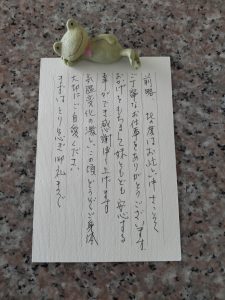 前略 此の度はお忙しい中 さっそく
ご丁寧なお仕事をありがとうございます
おかげをもちまして妹ともども 安心する
事ができ感謝申し上げます
気温変化の激しいこの頃 どうぞご身体
大切にご自愛ください
まずはとり急ぎ御礼まで